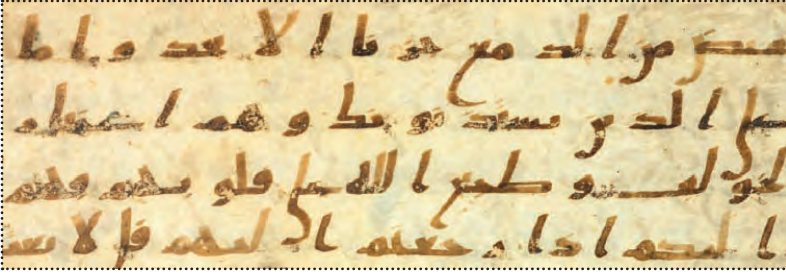 تفيض من الدمع حزنا الا يجدوا ما
على الذين يستذنونك وهم اغنيا
لخولف وطبع الله على قلوبهم فهم
اليكم اذا رجعتم اليهم قل لا تعتذ